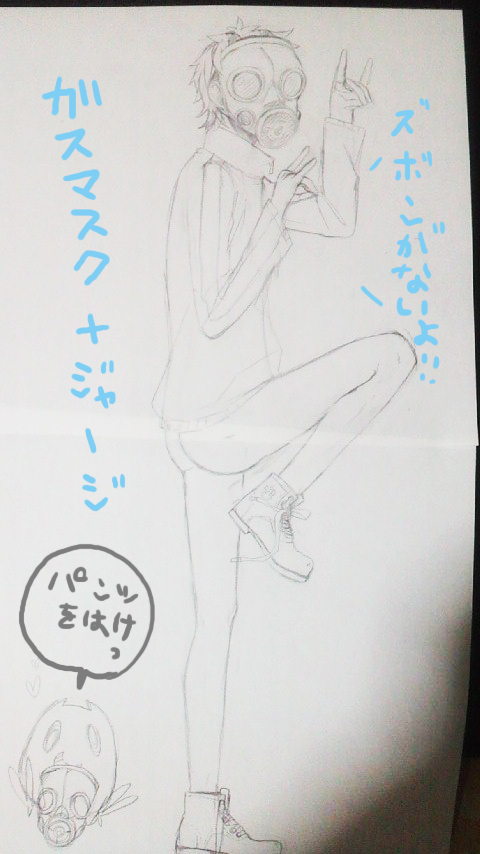 ズボンがないよ!!
ガスマスク+ジャージ
パンツ
をはけっ